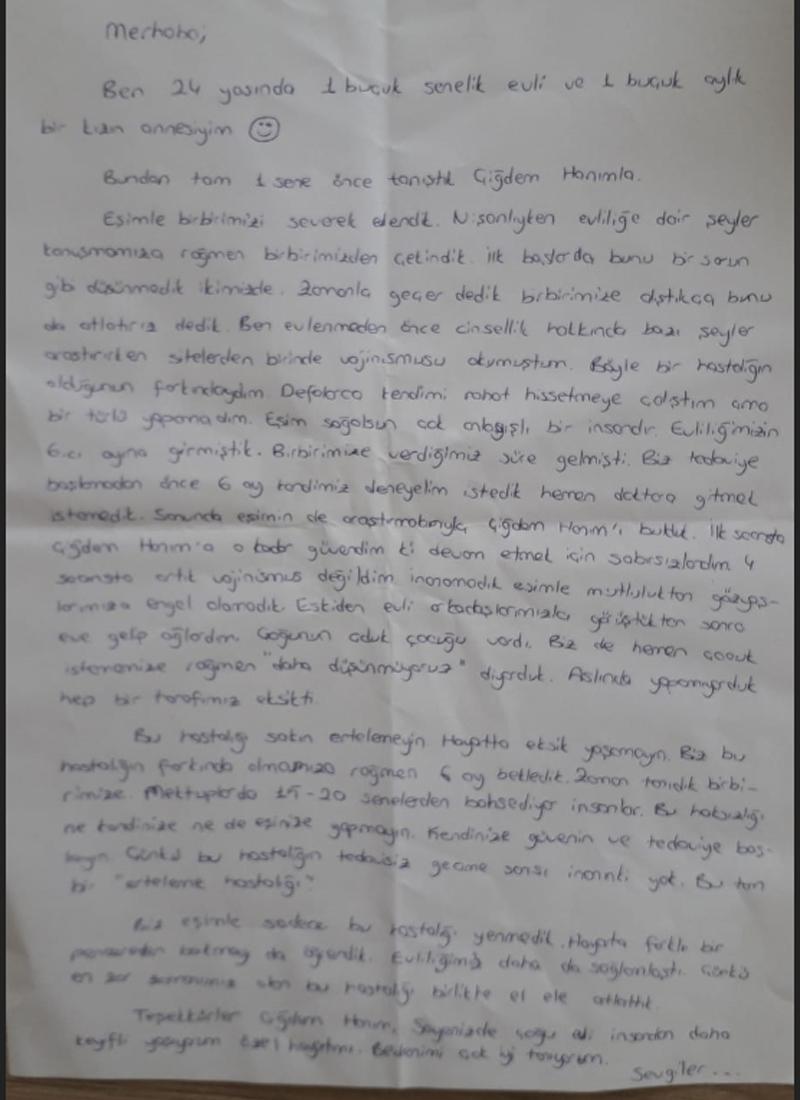 Merhaba;
Ben 24 yaşında 1 buçuk senelik evli ve 1 buçuk aylık
bir kızın annesiyim
Bundan tam 1 sene önce tanıştık Çiğdem Hanımla.
Eşimle birbirimizi severek evlendik. Nişanlıyken evliliğe dair şeyler
konuşmamıza rağmen birbirimizden çekindik. İlk başlarda bunu bir sorun
gibi düşünmedik ikimizde. Zamanla geçer dedik birbirimize alıştıkça bunu
da atlatırız dedik. Ben evlenmeden önce cinsellik hakkında bazı şeyler
araştırırken sitelerden birinde vajinismusu okumuştum. Böyle bir hastalığın
olduğunun farkındaydım. Defalarca kendimi rahat hissetmeye çalıştım ama
bir türlü yapamadım. Eşim sağolsun çok anlayışlı bir insandır. Evliliğimizin
6.cı ayına girmiştik. Birbirimize verdiğimiz süre gelmişti. Biz tedaviye
başlamadan önce 6 ay kendimiz deneyelim istedik hemen doktora gitmek
istemedik. Sonunda eşimin de araştırmalarıyla Çiğdem Hanım'ı bulduk. İlk seansta
Çiğdem Hanım'a o kadar güvendim ki devam etmek için sabırsızlandım. 4
seansta artık vajinismus değildim inanamadık eşimle mutluluktan gözyaş-
larımıza engel olamadık. Eskiden evli arkadaşlarımızla görüştükten sonra
eve gelip ağlardım. Çoğunun çoluk çocuğu vardı. Biz de hemen çocuk
istememize rağmen "daha düşünmüyoruz" diyorduk. Aslında yapamıyorduk
hep bir tarafımız eksikti.
Bu hastalığı sakın ertelemeyin. Hayatta eksik yaşamayın. Biz bu
hastalığın farkında olmamıza rağmen 6 ay bekledik. Zaman tanıdık birbi-
rimize. Mektuplarda 15-20 senelerden bahsediyor insanlar. Bu haksızlığı
ne kendinize ne de eşinize yapmayın. Kendinize güvenin ve tedaviye baş-
layın. Çünkü bu hastalığın tedavisiz geçme şansı yok. Bu tam
bir "erteleme hastalığı"
Biz eşimle sadece bu hastalığı yenmedik. Hayata farklı bir
pencereden bakmayı da öğrendik. Evliliğimiz daha da sağlamlaştı. Çünkü
en zor olan bu hastalığı birlikte el ele atlattık.
Teşekkürler Çiğdem Hanım. Sayenizde çoğu evli insandan daha
keyifli yaşıyorum özel hayatımı. Bedenimi çok iyi tanıyorum.
Sevgiler...